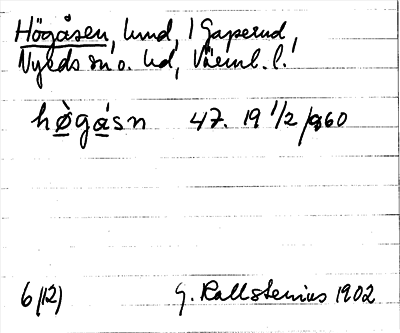 Högåsen, lund, i Gaperud,
Nyeds sn o. hd, Värml. l.
hø̀gåsn 47. 19 1/2 1960
6(12) G. Kallstenius 1902